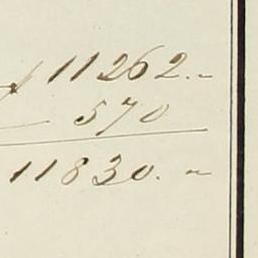 ƒ 11262. „
570
11830. „